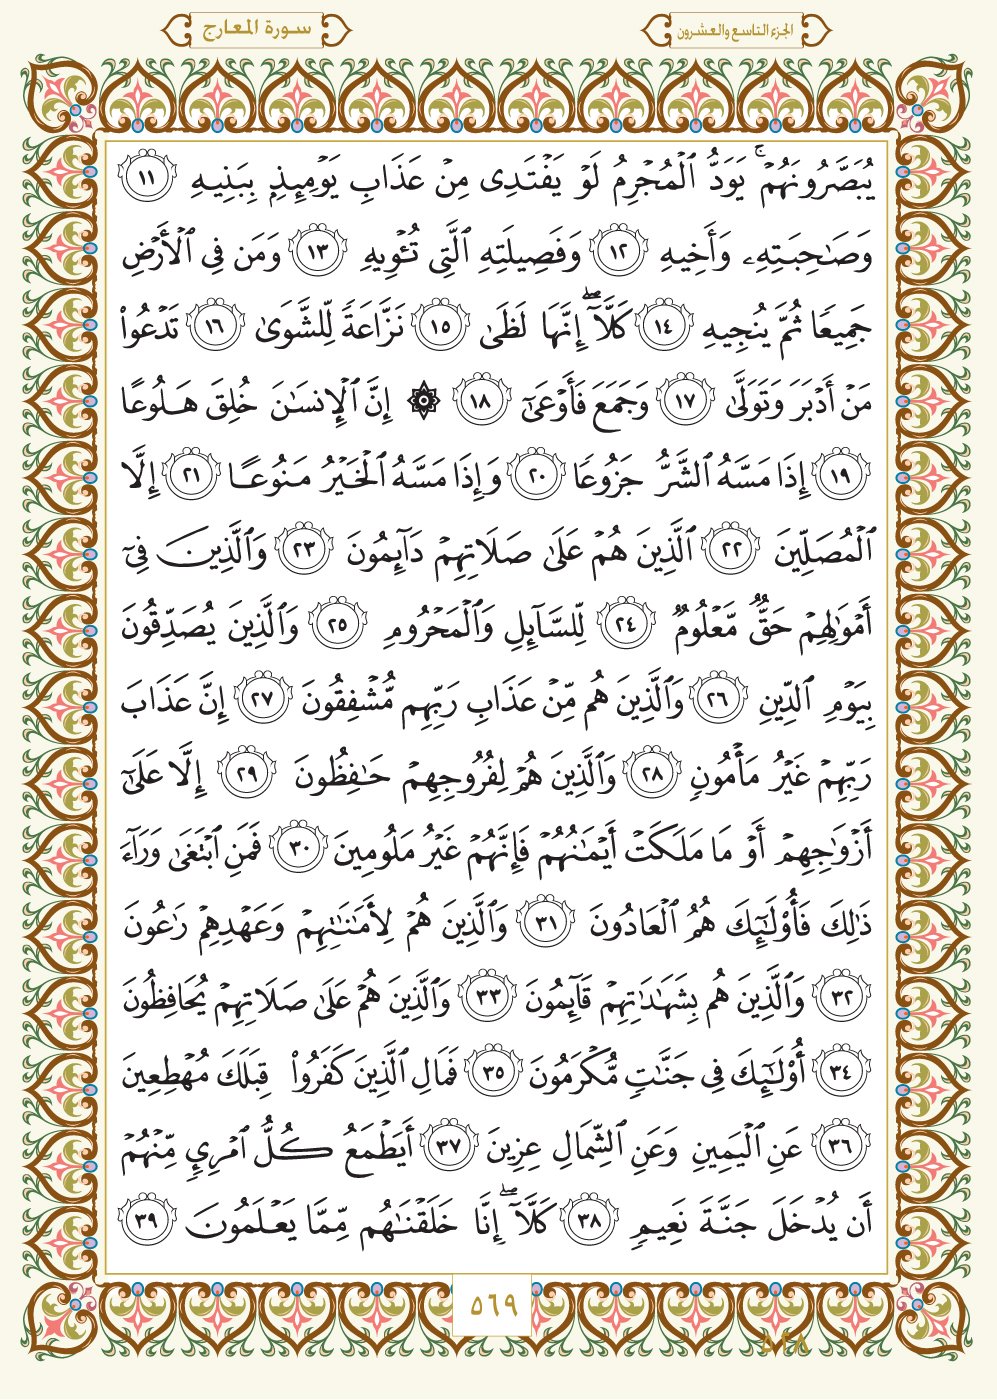 الجزء التاسع والعشرون
سورة المعارج
يُبَصَّرُونَهُمْ ۚ يَوَدُّ ٱلْمُجْرِمُ لَوْ يَفْتَدِى مِنْ عَذَابِ يَوْمِئِذٍۭ بِبَنِيهِ ١١
وَصَـٰحِبَتِهِۦ وَأَخِيهِ ١٢ وَفَصِيلَتِهِ ٱلَّتِى تُـْٔوِيهِ ١٣ وَمَن فِى ٱلْأَرْضِ
جَمِيعًا ثُمَّ يُنجِيهِ ١٤ كَلَّآ ۖ إِنَّهَا لَظَىٰ ١٥ نَزَّاعَةً لِّلشَّوَىٰ ١٦ تَدْعُوا۟
مَنْ أَدْبَرَ وَتَوَلَّىٰ ١٧ وَجَمَعَ فَأَوْعَىٰٓ ١٨ ۞ إِنَّ ٱلْإِنسَـٰنَ خُلِقَ هَلُوعًا
١٩ إِذَا مَسَّهُ ٱلشَّرُّ جَزُوعًا ٢٠ وَإِذَا مَسَّهُ ٱلْخَيْرُ مَنُوعًا ٢١ إِلَّا
ٱلْمُصَلِّينَ ٢٢ ٱلَّذِينَ هُمْ عَلَىٰ صَلَاتِهِمْ دَآئِمُونَ ٢٣ وَٱلَّذِينَ فِىٓ
أَمْوَٰلِهِمْ حَقٌّ مَّعْلُومٌ ٢٤ لِّلسَّآئِلِ وَٱلْمَحْرُومِ ٢٥ وَٱلَّذِينَ يُصَدِّقُونَ
بِيَوْمِ ٱلدِّينِ ٢٦ وَٱلَّذِينَ هُم مِّنْ عَذَابِ رَبِّهِم مُّشْفِقُونَ ٢٧ إِنَّ عَذَابَ
رَبِّهِمْ غَيْرُ مَأْمُونٍ ٢٨ وَٱلَّذِينَ هُمْ لِفُرُوجِهِمْ حَـٰفِظُونَ ٢٩ إِلَّا عَلَىٰٓ
أَزْوَٰجِهِمْ أَوْ مَا مَلَكَتْ أَيْمَـٰنُهُمْ فَإِنَّهُمْ غَيْرُ مَلُومِينَ ٣٠ فَمَنِ ٱبْتَغَىٰ وَرَآءَ
ذَٰلِكَ فَأُو۟لَـٰٓئِكَ هُمُ ٱلْعَادُونَ ٣١ وَٱلَّذِينَ هُمْ لِأَمَـٰنَـٰتِهِمْ وَعَهْدِهِمْ رَٰعُونَ
٣٢ وَٱلَّذِينَ هُم بِشَهَـٰدَٰتِهِمْ قَآئِمُونَ ٣٣ وَٱلَّذِينَ هُمْ عَلَىٰ صَلَاتِهِمْ يُحَافِظُونَ
٣٤ أُو۟لَـٰٓئِكَ فِى جَنَّـٰتٍ مُّكْرَمُونَ ٣٥ فَمَالِ ٱلَّذِينَ كَفَرُوا۟ قِبَلَكَ مُهْطِعِينَ
٣٦ عَنِ ٱلْيَمِينِ وَعَنِ ٱلشِّمَالِ عِزِينَ ٣٧ أَيَطْمَعُ كُلُّ ٱمْرِئٍ مِّنْهُمْ
أَن يُدْخَلَ جَنَّةَ نَعِيمٍ ٣٨ كَلَّآ ۖ إِنَّا خَلَقْنَـٰهُم مِّمَّا يَعْلَمُونَ ٣٩
٥٦٩